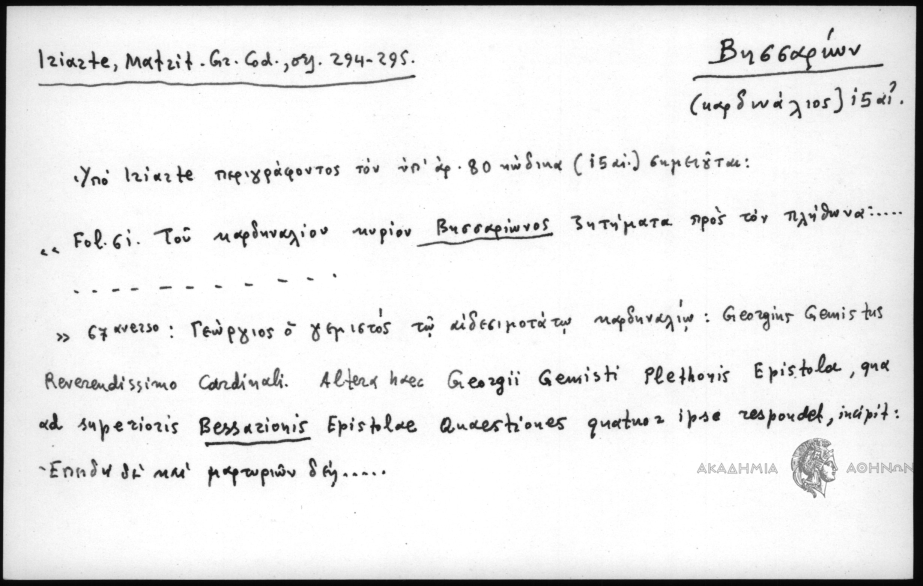 Iriarte, Matrit. Gr. Cod., σελ. 294-295.
Βησσαρίων
(καρδινάλιος) ις αἰ.
Ὑπό Iriarte περιγράφοντος τόν ὑπ' ἀρ. 80 κώδικα (ις αἰ.) σημειοῦται:
« Fol. 61. Τοῦ καρδηναλίου κυρίου Βησσαρίωνος ζητήματα πρὸς τόν πλήθωνα:....
- - - - - - - - - - -
» 67 averso: Γεώργιος ὁ γεμιστός τῷ αἰδεσιμοτάτῳ καρδηναλίῳ: Georgius Gemistus
Reverendissimo Cardinali. Altera haec Georgii Gemisti Plethonis Epistola, qua
ad superioris Bessarionis Epistolae Quaestiones quatuor ipse respondet, incipit:
Ἐπειδή δέ καί μαρτυριῶν δεῖ.....
ΑΚΑΔΗΜΙΑ ΑΘΗΝΩΝ